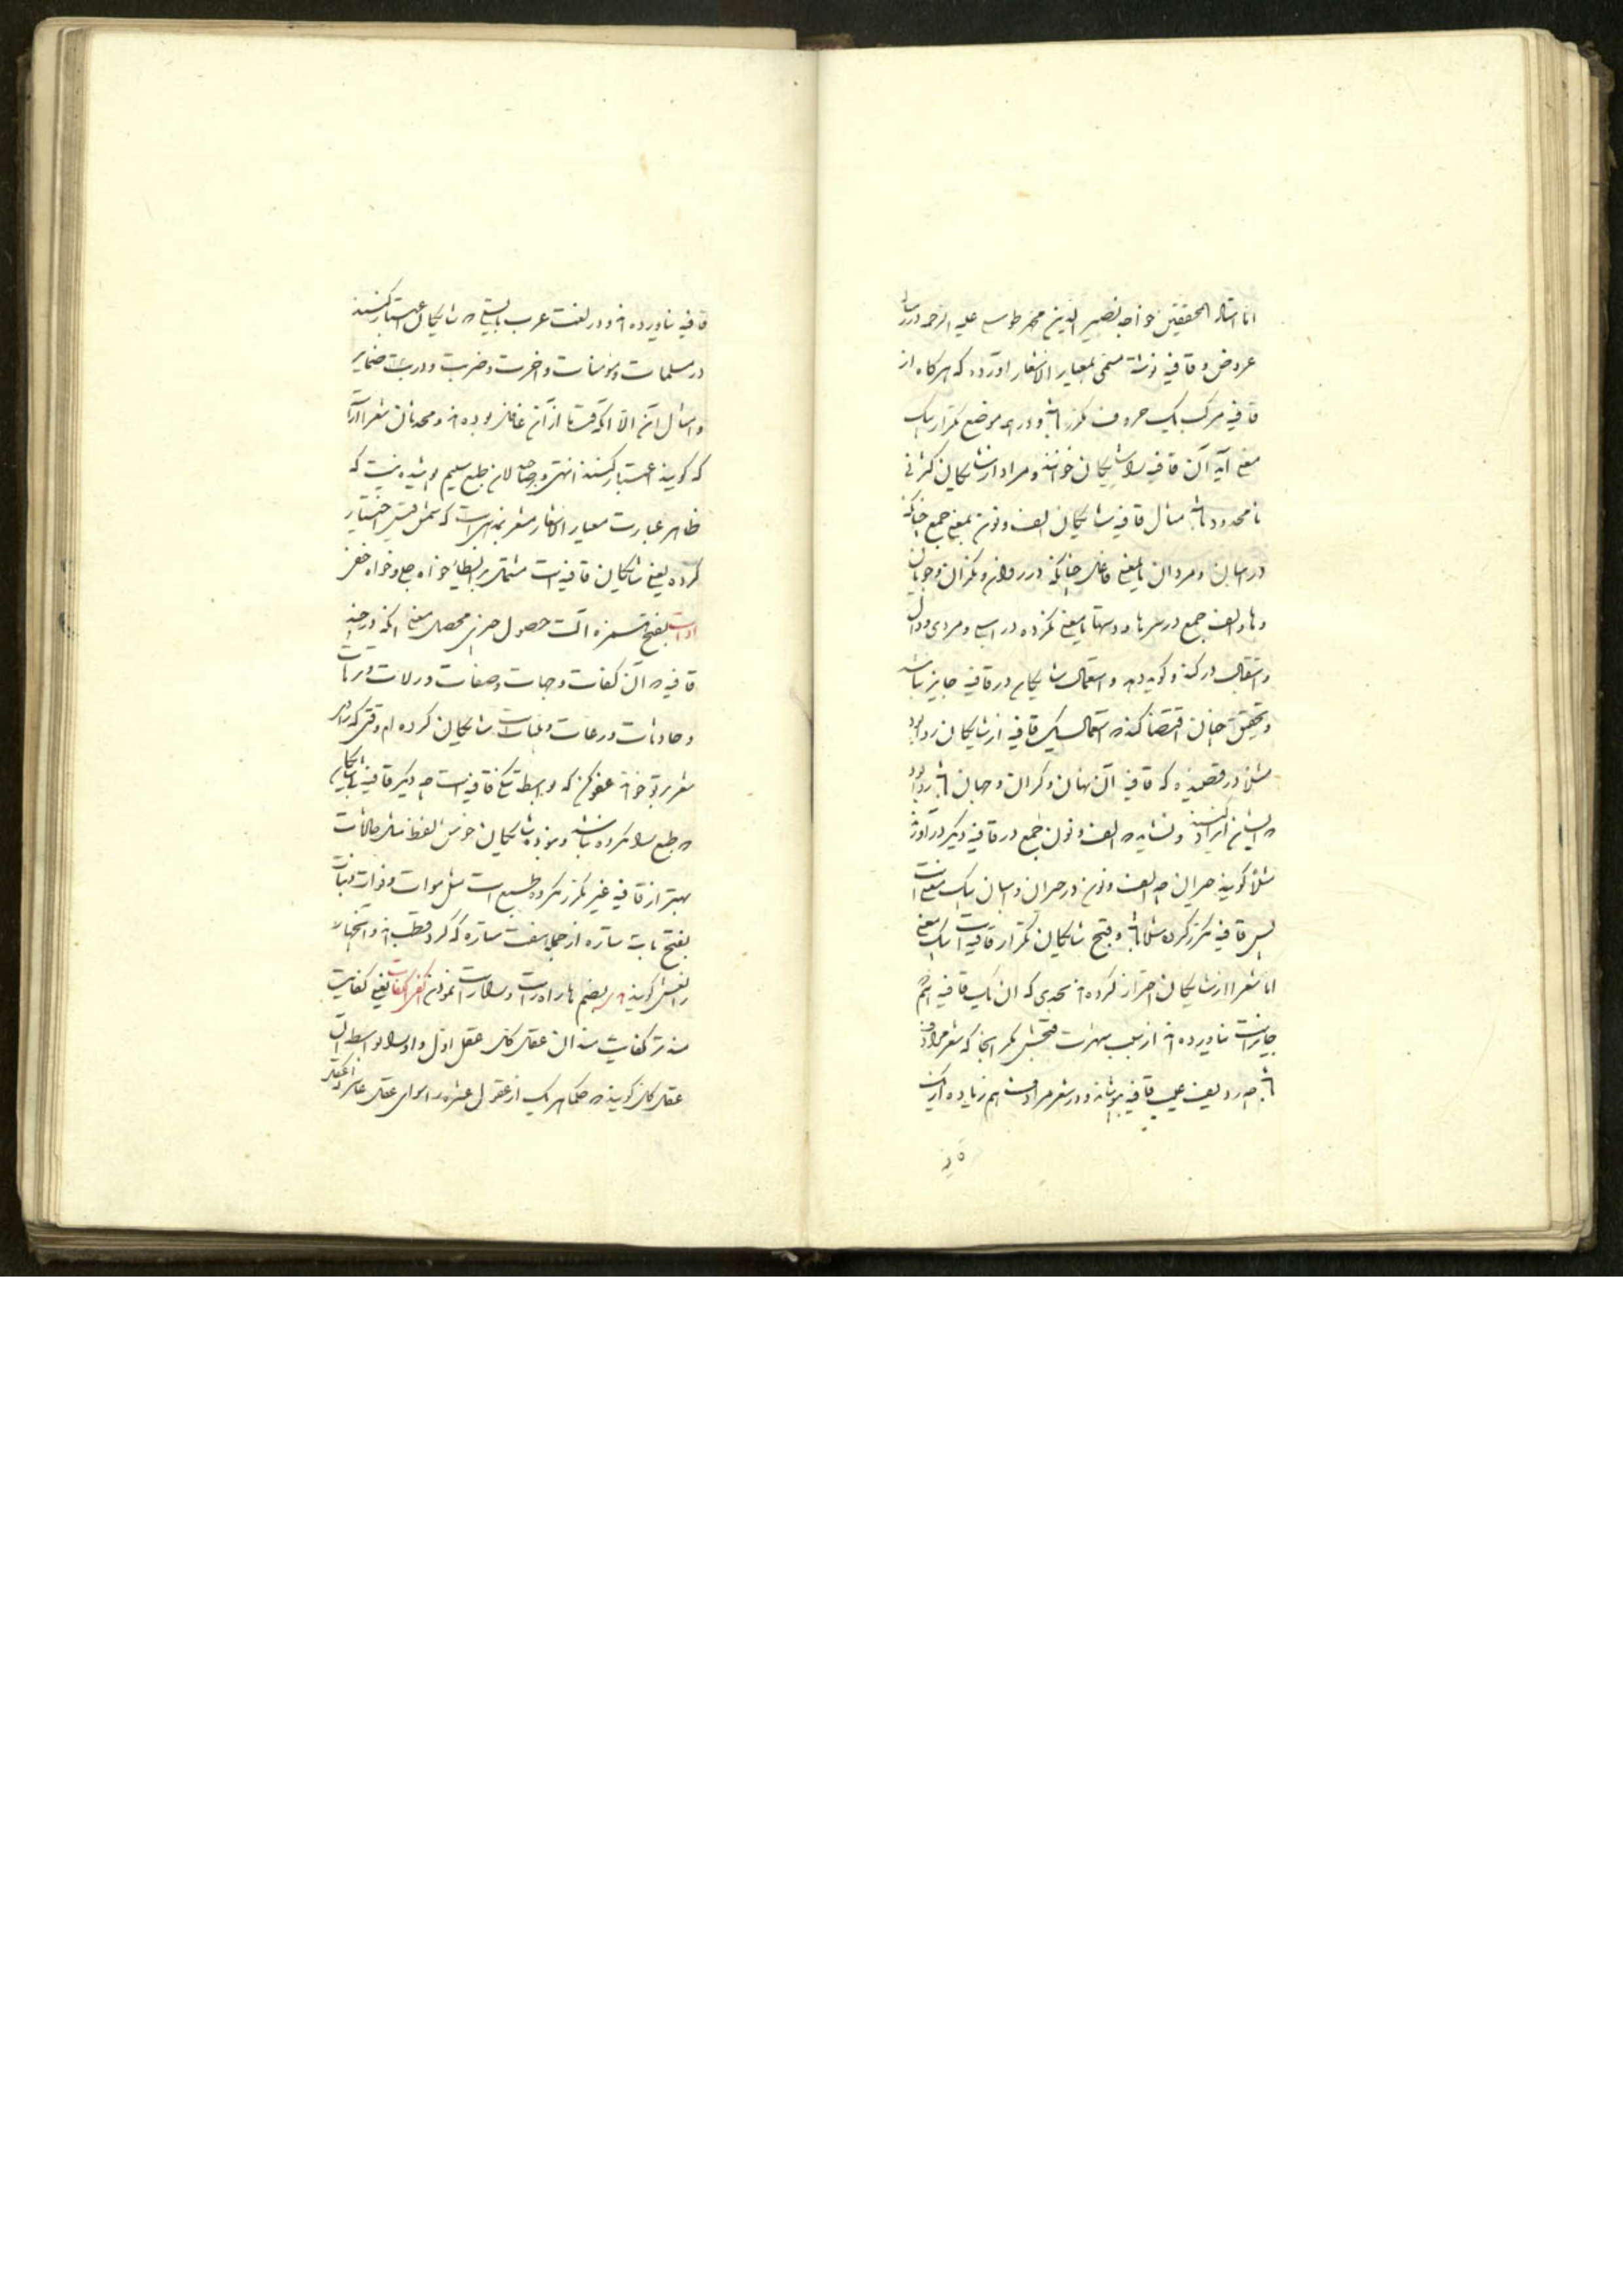 اما استاد المحققین خواجه نصیر الدین محمد طوسی علیه الرحمه در رساله
عروض و قافیه نوشته مسمی بمعیار الاشعار آورده که هرگاه از
قافیه مرکب یک حروف مکرر باشد و در همه موضع تکرار بیک
معنی آید آن قافیه را شایکان خوانند و مراد از شایکان کثرتی
نامحدود باشد مثال قافیه شایکان الف و نون بمعنی جمع چنانکه
در اسبان و مردان یا بمعنی فاعل چنانکه در روان و نگران و جویان
و ها و الف جمع در سرها و دستها یا بمعنی نکره در اسبی و مردی و دال
استقبال در کند و گوید و استعمال شایکان در قافیه جایز نباشد
و تحقیق چنان اقتضا کند که استعمال یک قافیه از شایکان روا بود
مثلا در قصیده که قافیه آن نهان و کران و جهان باشد روا بود
که ایراد کنند و نشاید که الف و نون جمع در قافیه دیگر در آورند
مثلا گویند حیران چه الف و نون در حیران و اسبان بیک معنی است
پس قافیه مکرر کرده باشند و قبح شایکان تکرار قافیه است بیک معنی
اما شعرا از شایکان احتراز کرده اند بحدی که آن یک قافیه هم
جایز است نیاورده اند از سبب شهرت قبحش مگر آنجا که شعر مردف
باشد چه ردیف عیب قافیه بپوشاند و در شعر مردف هم زیاده از یک
قافیه نیاورده اند و در لغت عرب بایستی که شایکان اعتبار کنند
در مسلمات و مؤمنات و اخرت و ضربت و در ضمایر
و امثال آن الا آنکه قدما از آن غافل بوده اند و محدثان شعرا را
که گویند اعتبار کنند انتهی و بر صاحبدلان طبع سلیم پوشیده نیست که
ظاهر عبارت معیار الاشعار مشعر بمذهبی است که شمس قیس اختیار
کرده یعنی شایکان قافیه است مشتمل بر ایطا خواه جلی و خواه خفی
ادات بفتح همزه آلت حصول چیزی محصل معنی آنکه در چند
قافیه که آن کفات و جهات و صفات و دلات
و حادثات و درعات و ملبات است شایکان کرده ام وقتی که
شعر بر تو خواند عفو کن که واسطه تنگی قافیه است چه دیگر قافیه شایکان
که طبع را مکروه باشد و نبوده شایکان خوش لفظ مثل حالات
بهتر از قافیه غیر مکرر مکروه طبع است مثل موات و نوات و بنات
بفتح بابت ستاره از جمله هفت ستاره که گرد قطب اند و آنچهار
را نعش گویند بضم ها راه راست و راه راست نمودن کفر کفات یعنی کفایت
عقل کل عقل اول و او را بواسطه آن
عقل کل گویند که حکما هر یک از عقول عشره را سوای عقل عاشر